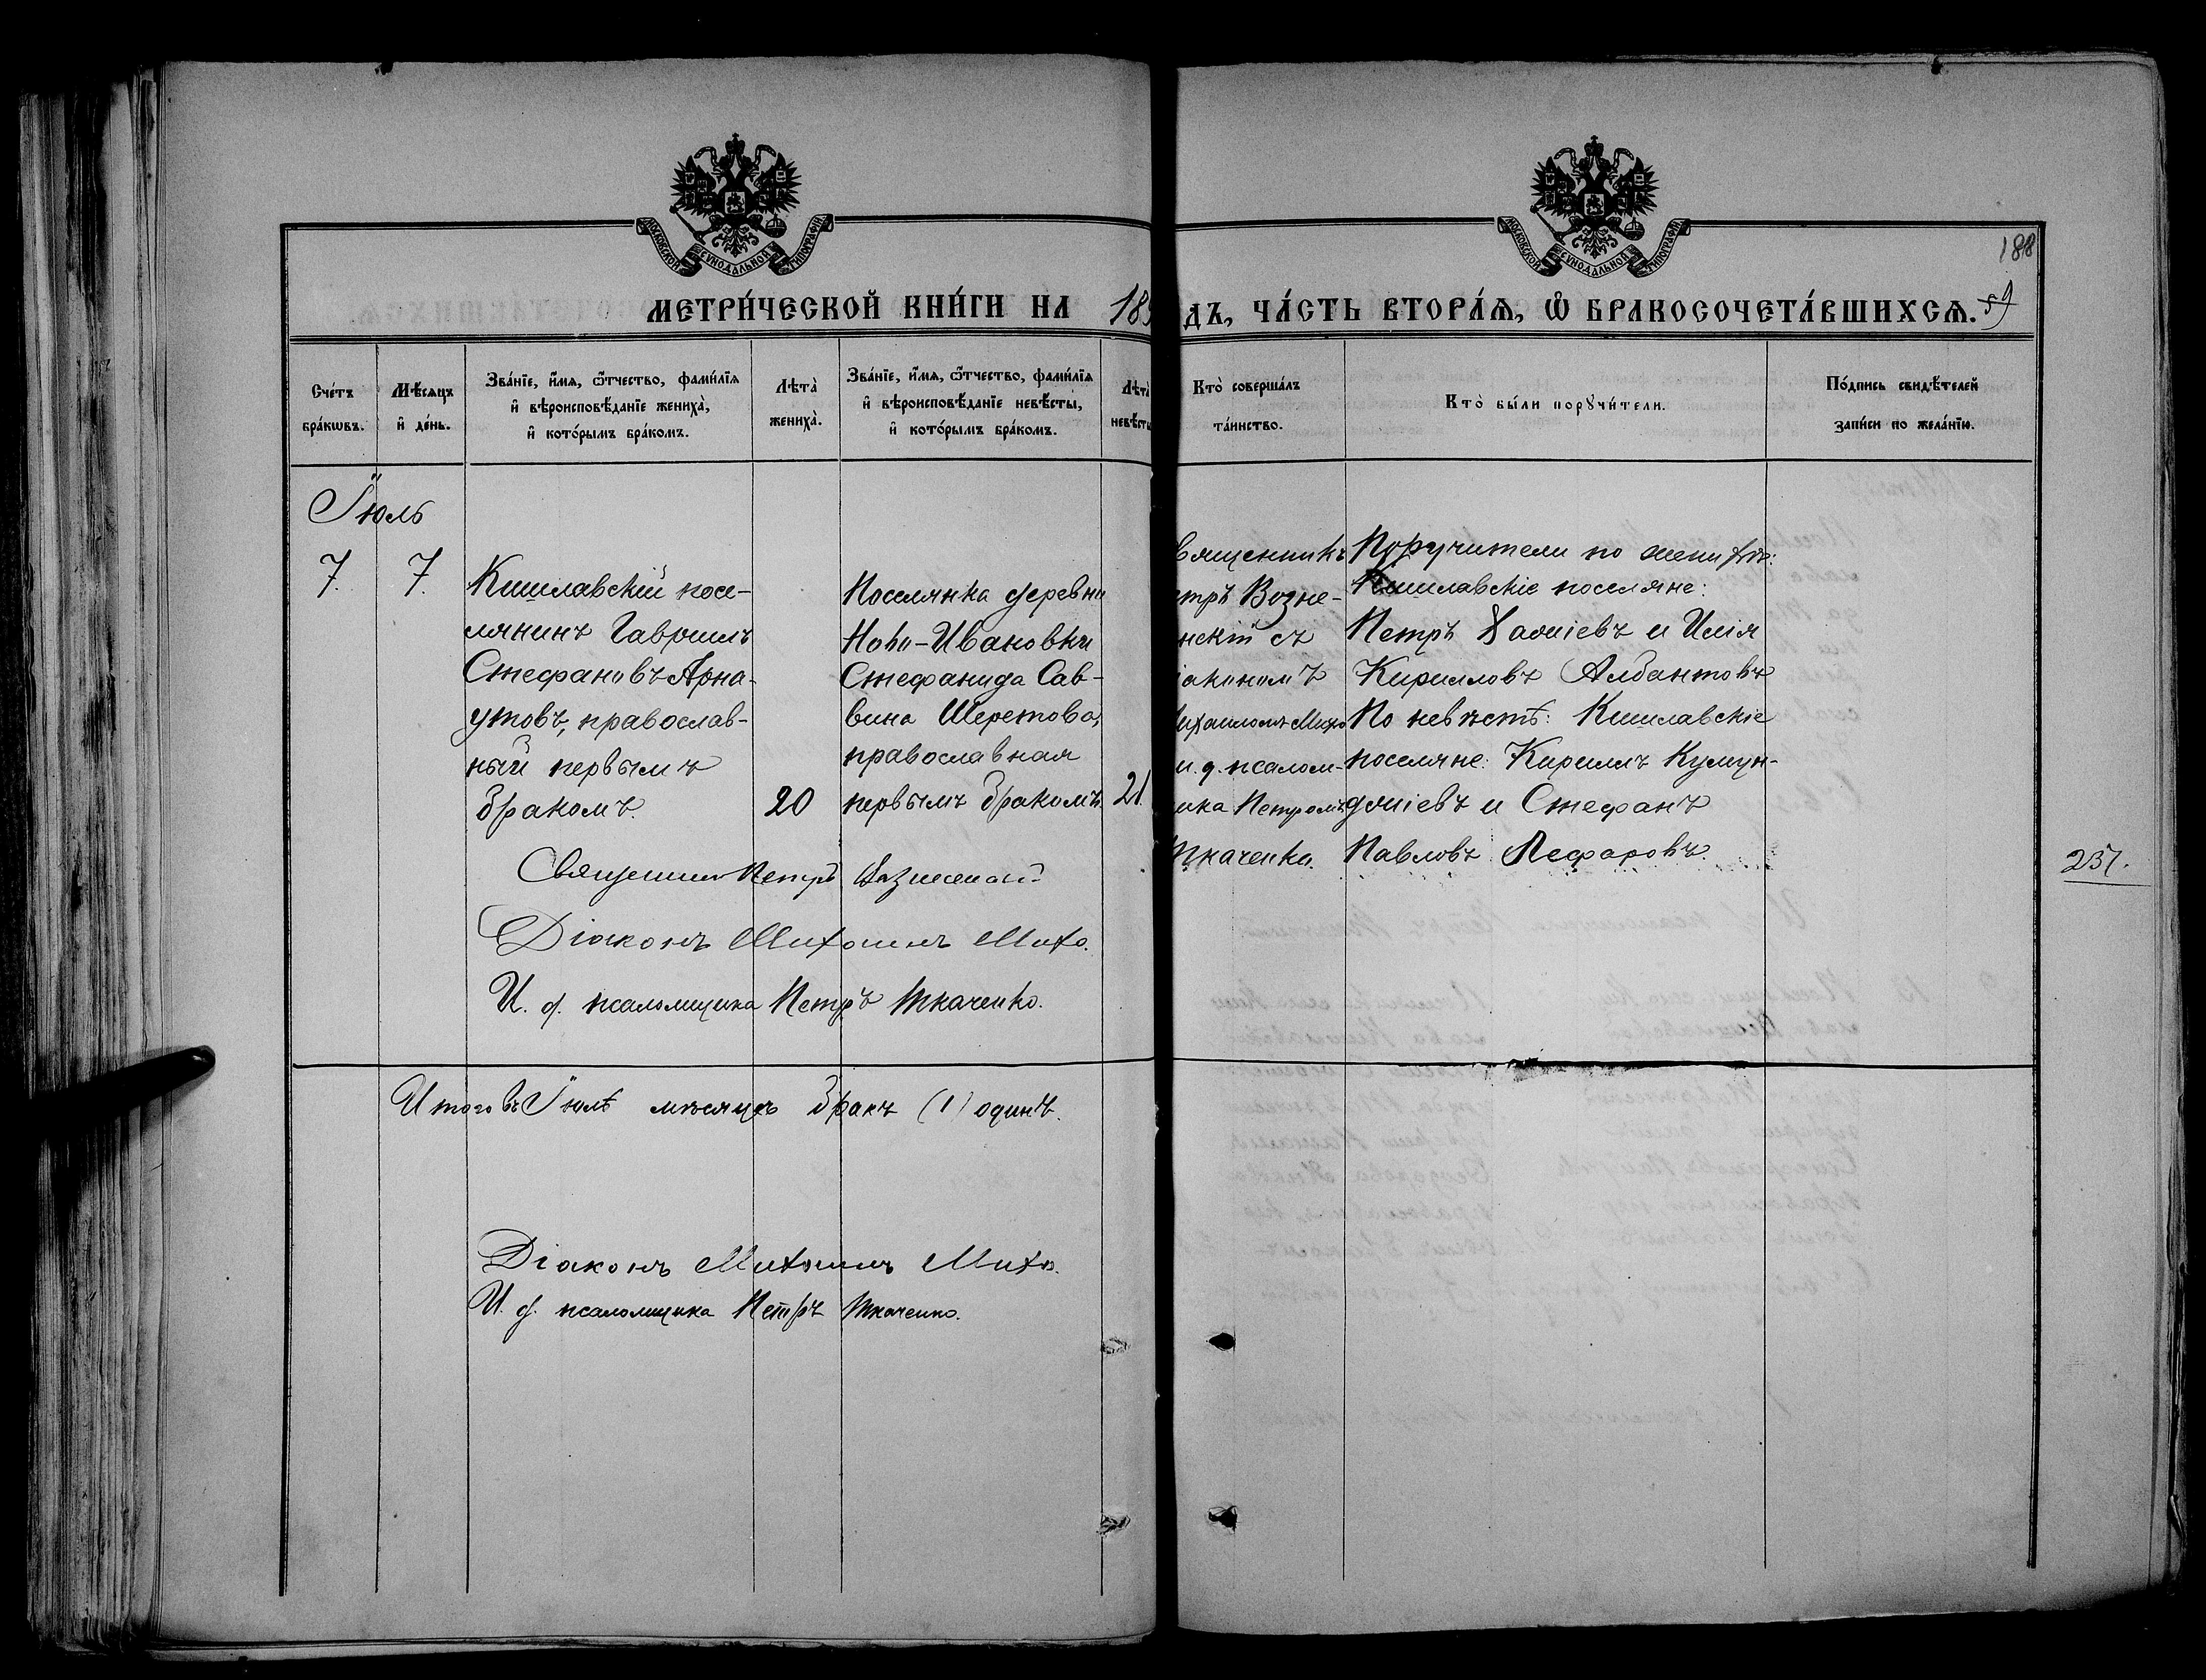 МОСКОВСКОЙ СѴНОДАЛЬНОЙ ТИПОГРАФІИ
МОСКОВСКОЙ СѴНОДАЛЬНОЙ ТИПОГРАФІИ
188
МЕТРИ́ЧЕСКОЙ КНИ́ГИ НА 189
ДЪ, ЧА́СТЬ ВТОРА́Ѧ, Ѽ БРАКОСОЧЕТА́ВШИХСѦ.
59
Сче́тъ бра́кѡвъ.
Мѣ́сѧцъ и҆ де́нь.
Зва́нїе, и҆́мѧ, ѻ҆́тчество, фами́лїѧ
и҆ вѣроисповѣ́данїе жениха̀,
и҆ кото́рымъ бра́комъ.
Лѣта̀ жениха̀.
Зва́нїе, и҆́мѧ, ѻ҆́тчество, фами́лїѧ
и҆ вѣроисповѣ́данїе невѣ́сты,
и҆ кото́рымъ бра́комъ.
Лѣта̀
невѣ́сты
Кто̀ соверша́лъ
та́инство.
Кто̀ бы́ли порꙋчи́тели.
По́дпись свидѣ́телей
за́писи по жела́нїю.
Іюль
7. 7.
Кишлавскій посе-
лянинъ Гавриилъ
Стефановъ Арна-
утовъ, православ-
ный первымъ
бракомъ.
20
Поселянка деревни
Ново-Ивановки
Стефанида Сав-
вина Шеретова,
православная
первымъ бракомъ.
21.
Священникъ
етръ Возне-
нскій съ
іакономъ
ихаиломъ Михо
и. д. псалом-
ика Петромъ
Ткаченко.
Поручители по женихѣ:
Кишлавскіе поселяне:
Петръ Хаджіевъ и Илія
Кирилловъ Албантовъ
По невѣстѣ: Кишлавскіе
поселяне: Кириллъ Кумун-
джіевъ и Стефанъ
Павловъ Пефаровъ.
237.
Священникъ Петръ Вознесенскій
Діаконъ Михаилъ Михо.
И. д. псаломщика Петръ Ткаченко.
Итого въ Іюлѣ мѣсяцѣ бракъ (1) одинъ.
Діаконъ Михаилъ Михо.
И. д. псаломщика Петръ Ткаченко.